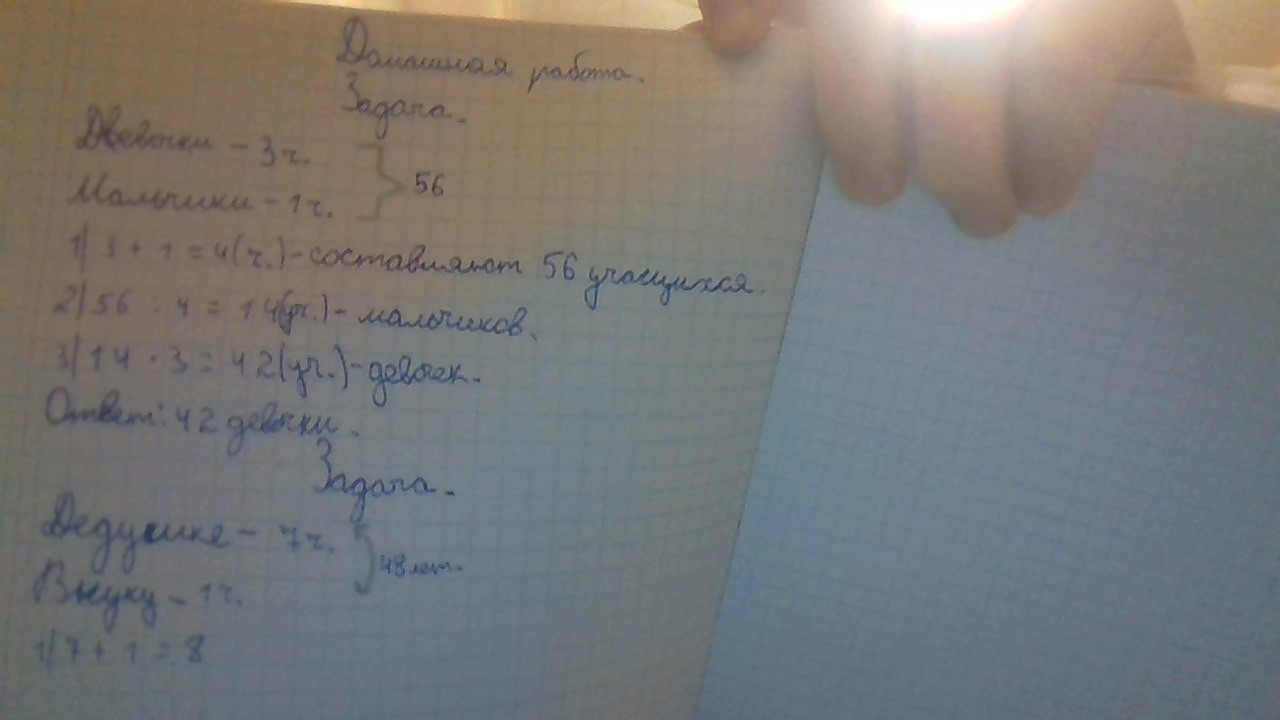 Домашная работа.
Задача.
Девочки - 3 ч.
Мальчики - 1 ч.
56
1) 3 + 1 = 4 (ч.) - составляют 56 учащихся.
2) 56 : 4 = 14 (уч.) - мальчиков.
3) 14 · 3 = 42 (уч.) - девочек.
Ответ: 42 девочки.
Задача.
Дедушке - 7 ч.
48 лет.
Внуку - 1 ч.
1) 7 + 1 = 8